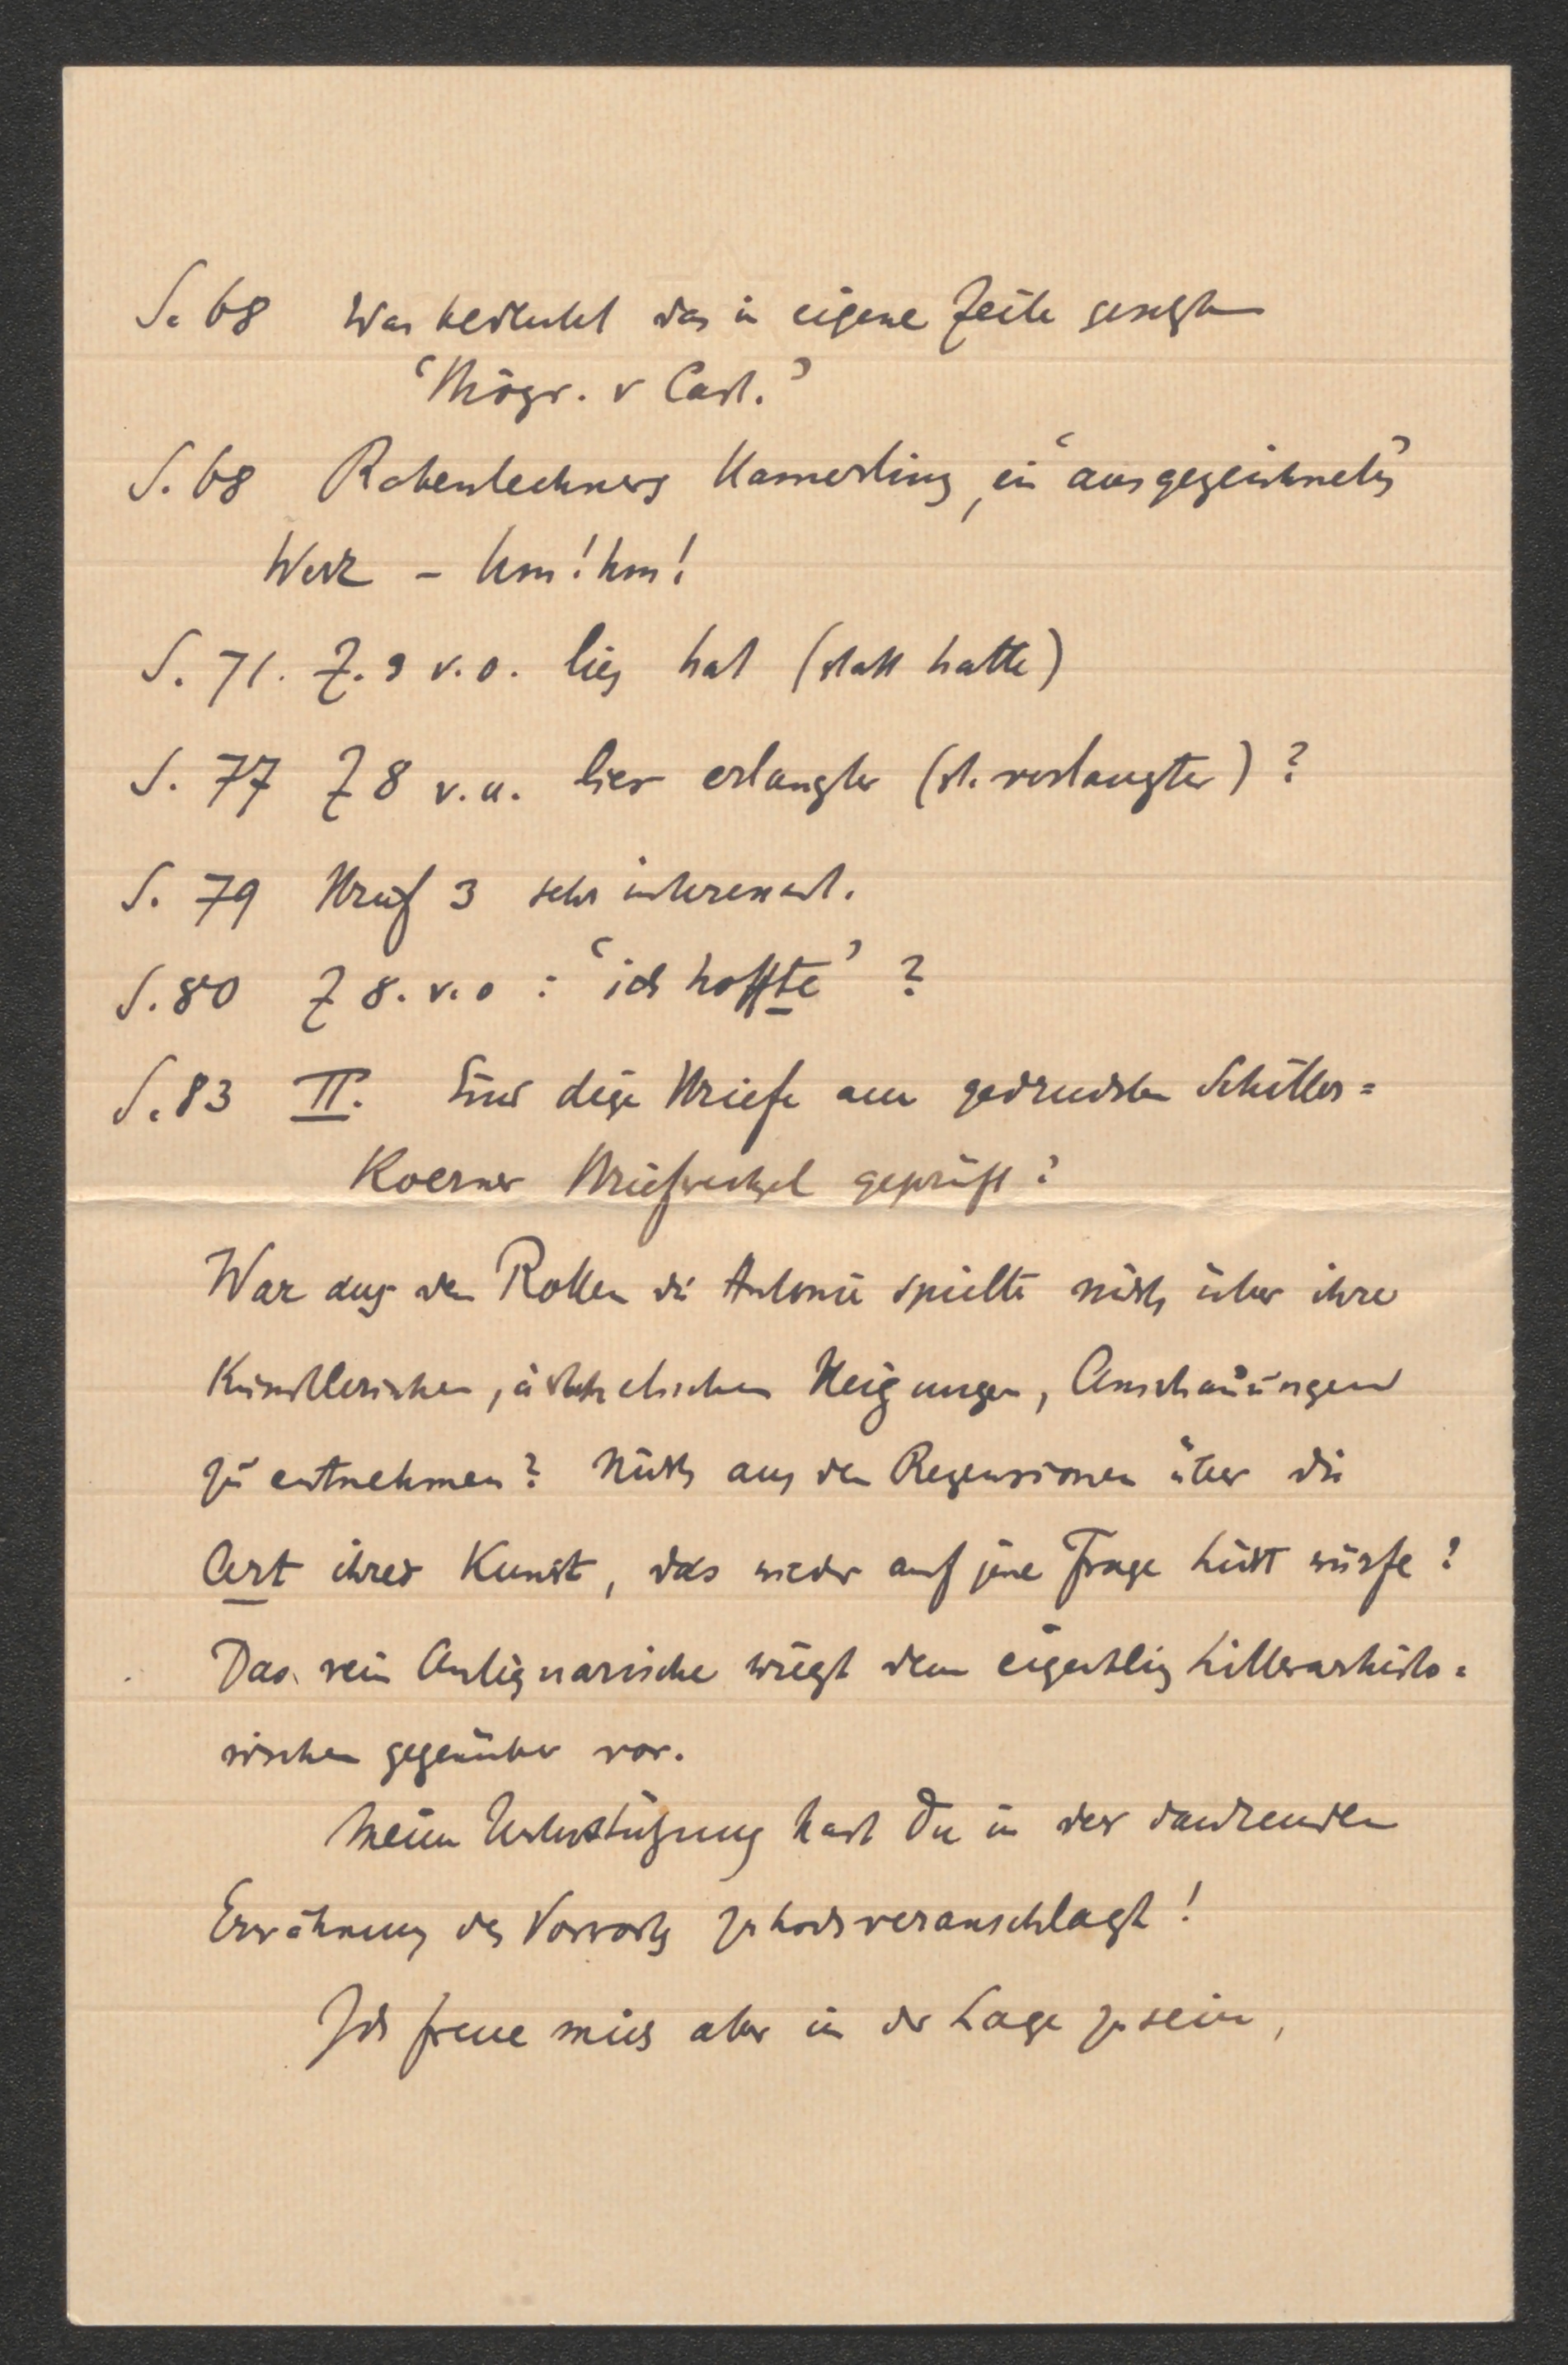 S. 68 Was bedeutet das in eigene Zeile gesetzte
‘Mögr. v Cast.’
S. 68 Rabenlechners Hamerling, ein ‘ausgezeichnetes’
Werk – hm! hm!
S. 71. Z. 9 v. o. lies hat (statt hatte)
S. 77 Z 8 v. u. lies erlangter (st. verlangter)?
S. 79 Brief 3 sehr interessant.
S. 80 Z 8. v. o : ‘ich hoffte’ ?
S. 83 II. Sind diese Briefe am gedruckten Schiller=
Koerner Briefwechsel geprüft?
War aus den Rollen die Antonie spielte nichts über ihre
Künstlerischen, ästhetischen Neigungen, Anschauungen
zu entnehmen? Nichts aus den Rezensionen über die
Art ihrer Kunst, das wieder auf jene Frage Licht würfe?
Das rein Antiquarische wiegt dem eigentlich Litterarhisto=
rischen gegenüber vor.
Meine Unterstützung hast Du in der dankenden
Erwähnung des Vorworts zu hoch veranschlagt!
Ich freue mich aber in der Lage zu sein,